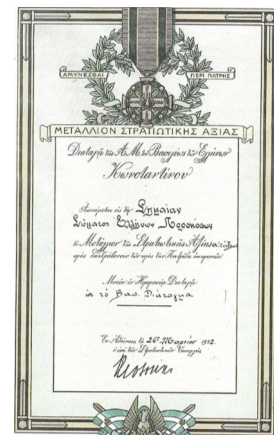 ΑΜΥΝΕΣΘΑΙ ΠΕΡΙ ΠΑΤΡΗΣ
ΜΕΤΑΛΛΙΟΝ ΣΤΡΑΤΙΩΤΙΚΗΣ ΑΞΙΑΣ
Διαταγῇ τῆς Α.Μ. τοῦ Βασιλέως τῶν Ἑλλήνων
Κωνσταντίνου
Ἀπονέμεται εἰς τὴν Σημαίαν
Σώματος Ἑλλήνων Προσκόπων
τὸ Μετάλλιον τῆς Στρατιωτικῆς Ἀξίας
πρὸς τὴν Πατρίδα
Διαταγῇ
Βασ. Διάταγμα
Ἐν Ἀθήναις τῇ 26ῃ Μαρτίου
ὁ ἐπὶ τῶν Στρατιωτικῶν Ὑπουργὸς